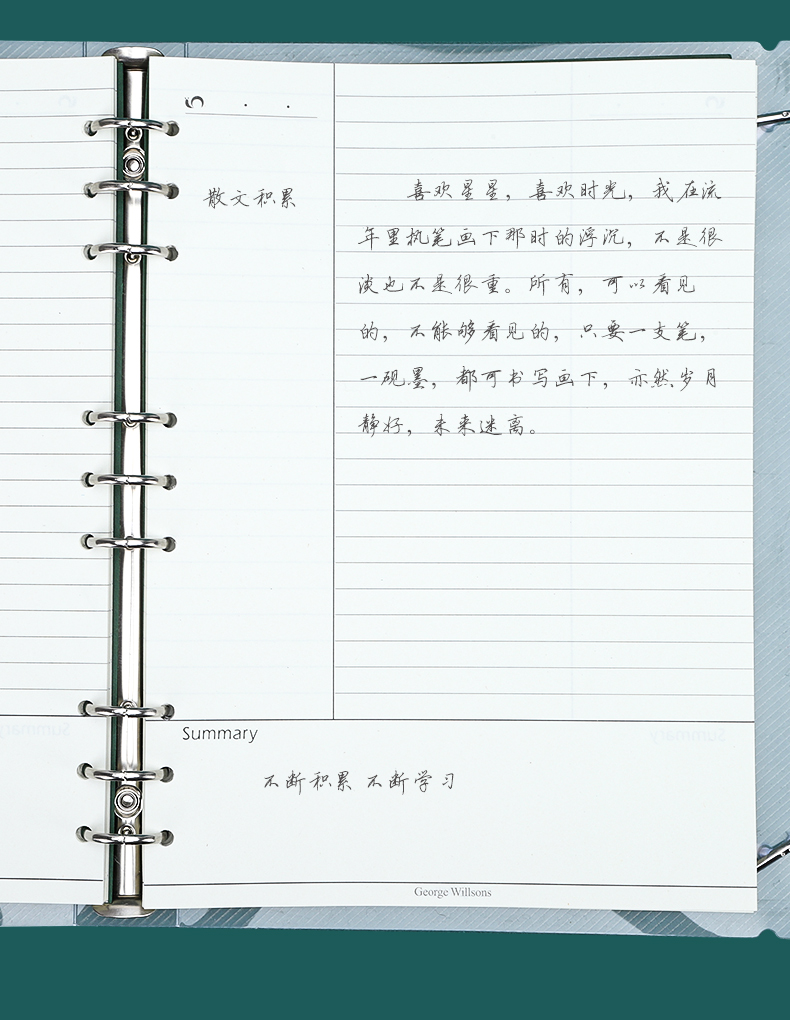 5 . .
散文积累
喜欢星星，喜欢时光，我在流
年里执笔画下那时的浮沉，不是很
淡也不是很重。所有，可以看见
的，不能够看见的，只要一支笔，
一砚墨，都可书写画下，亦然岁月
静好，未来迷离。
Summary
不断积累 不断学习
George Willsons